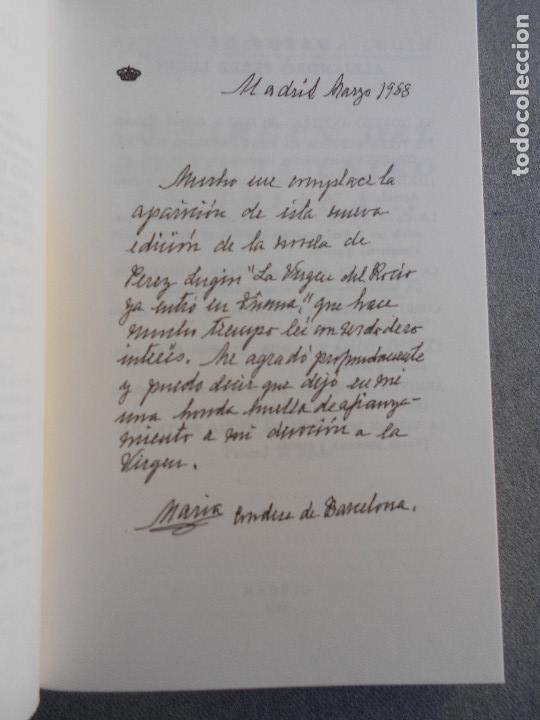 Madrid Marzo 1988
Mucho me complace la
aparición de esta nueva
edición de la novela de
Perez Lugin "La Virgen del Rocio
ya entró en Triana," que hace
mucho tiempo leí con verdadero
interés. Me agradó profundamente
y puedo decir que dejó en mi
una honda huella de afianza-
miento a mi devoción a la
Virgen.
Maria Condesa de Barcelona.
todocoleccion.net